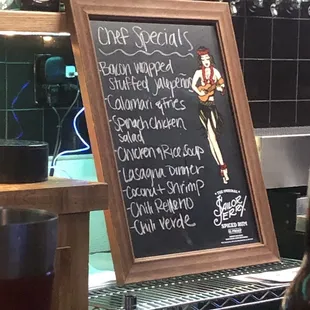 Chef Specials
Bacon wrapped
Stuffed Jalapeños
- Calamari & fries
- Spinach Chicken
Salad
- Chicken & Rice Soup
- Lasagna Dinner
- Coconut Shrimp
- Chili Relleno
- Chili Verde
THE ORIGINAL
SAILOR
JERRY
SPICED RUM